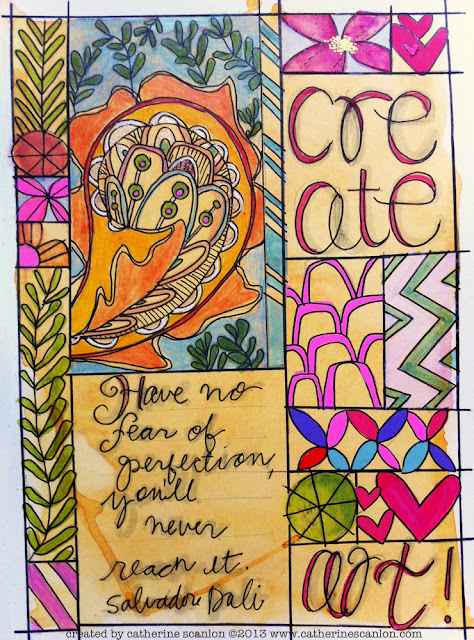 cre
ate
Have no
fear of
perfection,
you'll
never
reach it.
Salvadore Dali
art!
created by catherine scanlon ©2013 www.catherinescanlon.com